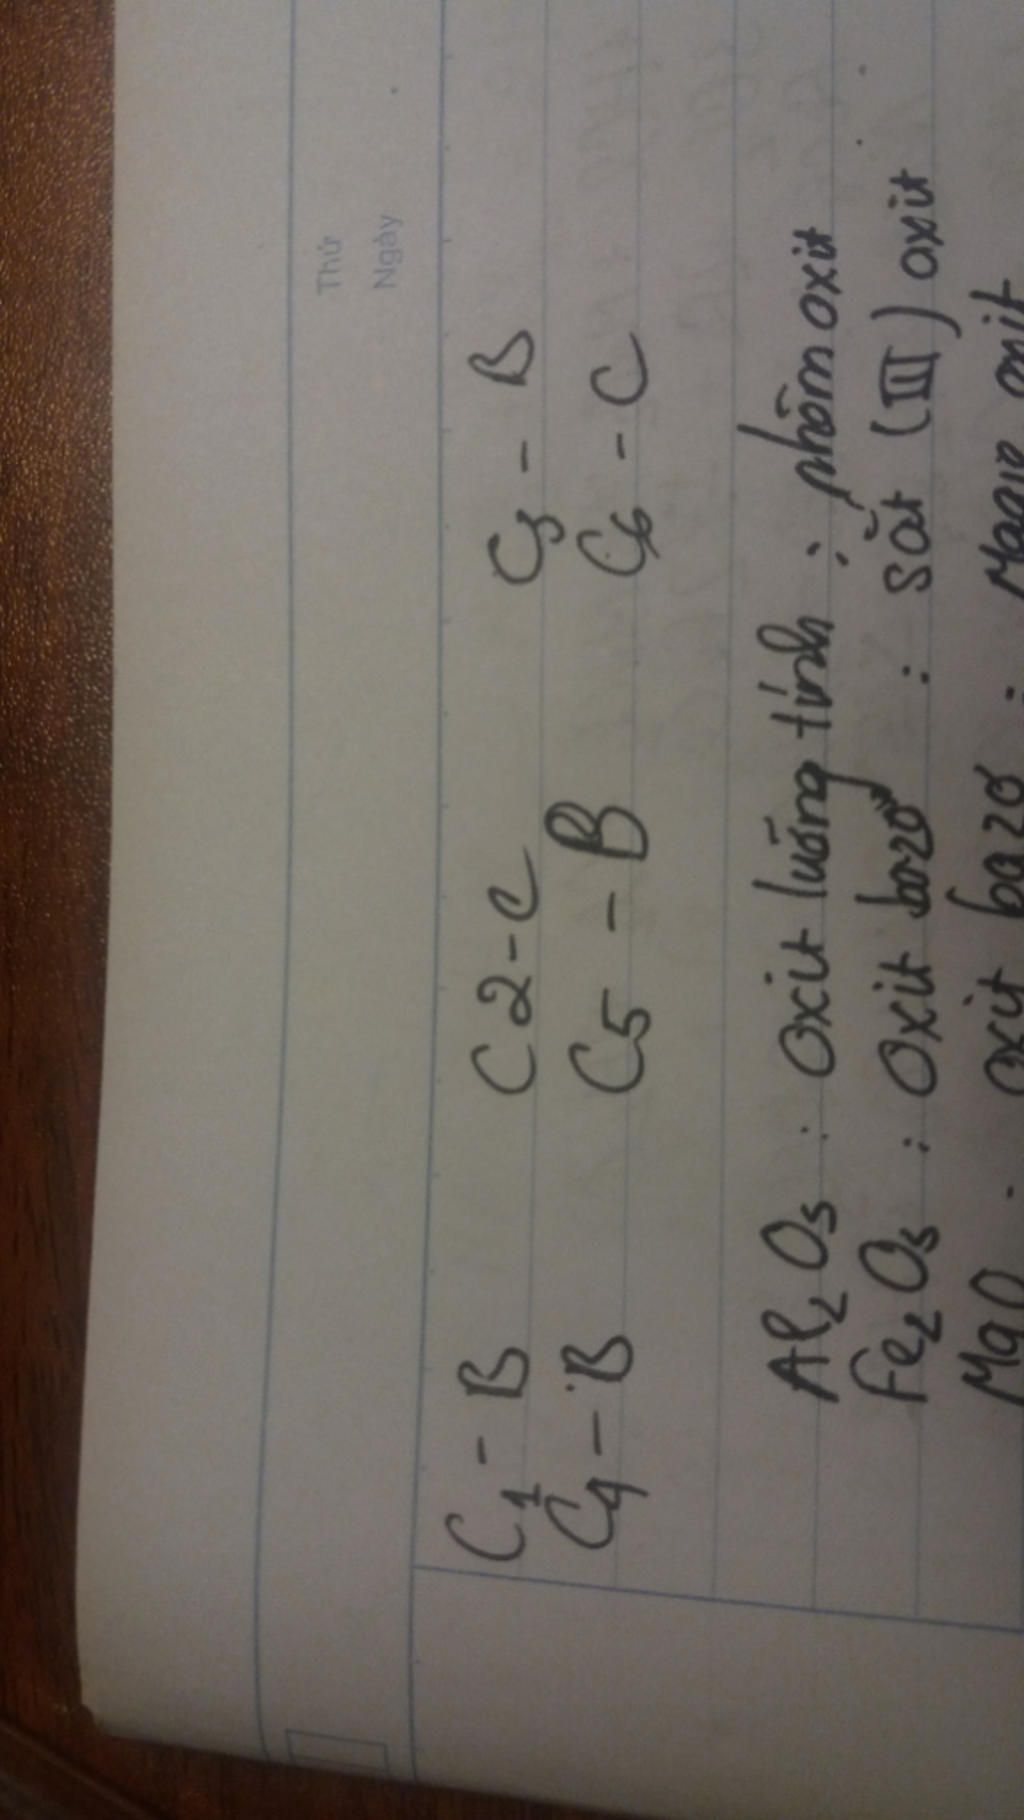 Thứ
Ngày
C1 - B C2 - C C3 - B
C4 - B C5 - B C6 - C
Al2O3 : Oxit lưỡng tính : nhôm oxit
Fe2O3 : Oxit bazơ : Sắt (III) oxit
MgO : Oxit bazơ : Magie oxit